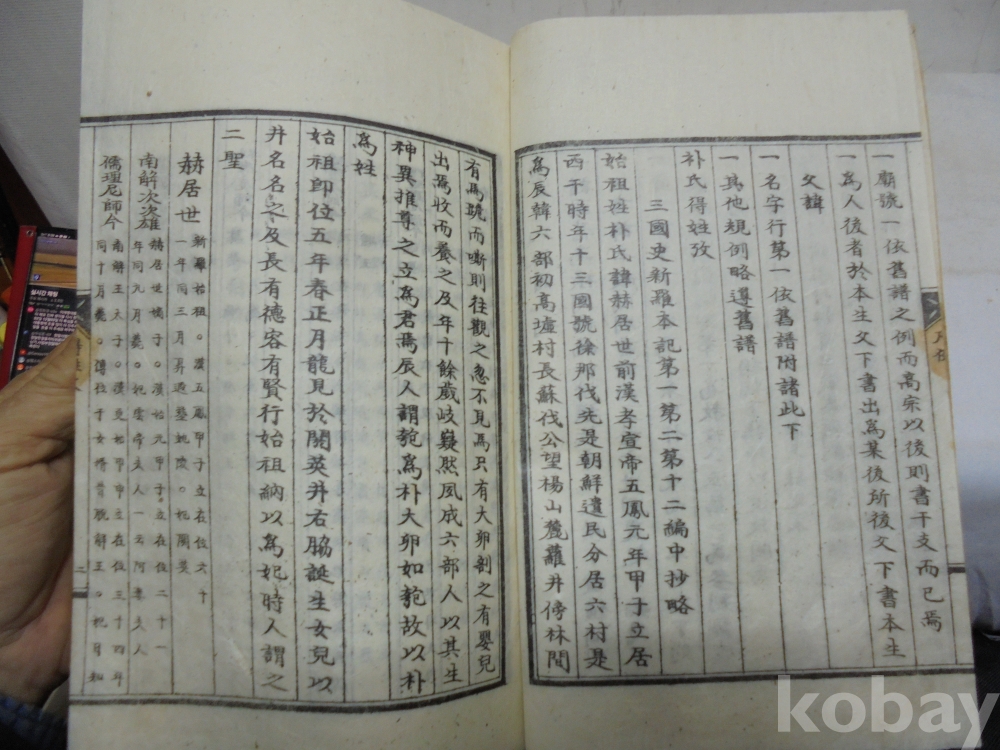 一廟號一依舊譜之例而高宗以後則書干支而已焉
一爲人後者於本生父下書出爲某後所後父下書本生
父諱
一名字行第一依舊譜附諸此下
一其他規例略遵舊譜
朴氏得姓攷
三國史新羅本記第一第二第十二編中抄略
始祖姓朴氏諱赫居世前漢孝宣帝五鳳元年甲子立居
西干時年十三國號徐那伐先是朝鮮遺民分居六村是
爲辰韓六部初高墟村長蘇伐公望楊山麓蘿井傍林間
有馬跪而嘶則往觀之忽不見馬只有大卵剖之有嬰兒
出焉收而養之及年十餘歲岐嶷然夙成六部人以其生
神異推尊之立爲君焉辰人謂瓠爲朴大卵如瓠故以朴
爲姓
始祖卽位五年春正月龍見於閼英井右脇誕生女兒以
井名名之及長有德容有賢行始祖納以爲妃時人謂之
二聖
赫居世 新羅始祖。漢五鳳甲子立在位六十
一年同三月昇遐葬蛇陵。妃閼英
南解次次雄 赫居世嫡子。漢始元甲子立在位二十一
年同九月薨。妃雲帝夫人一云阿婁夫人
儒理尼師今 南解王太子。漢更始甲申立在位三十四年
同十月薨。傳位于女壻昔脫解王。妃
二
kobay